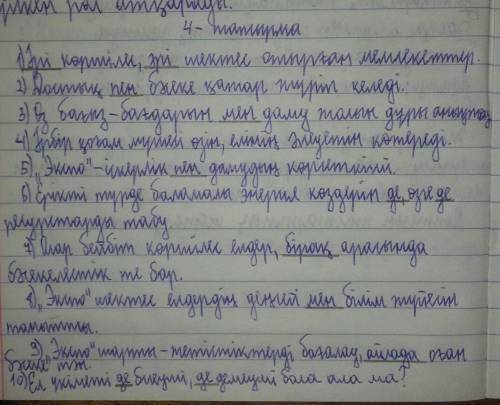 рөл атқарады.
4-тапсырма
1) Әрі көршілес, әрі шектес отырған мемлекеттер.
2) Достық пен бәсеке қатар жүріп келеді.
3) Өз бағыт-бағдарын мен даму жолын дұрыс
4) Әрбір қоғам мүшесі өзін, елінің әлеуетін көтереді.
5) „Экспо"-іскерлік пен дамудың көрсеткіші.
6) Ерікті түрде баламалы энергия көздерін де, өзге де
ресурстарды табу.
7) Олар бейбіт көршілес елдер, бірақ арасында
бәсекелестік те бар.
8) „Экспо" шектес елдердің деңгей мен білім жүйесін
таматты.
9) „Экспо" шарты-жетістіктерді бағалау, айлада оған
баға
10) Ел үкіметі де билеуші, де демеуші бола ала ма?